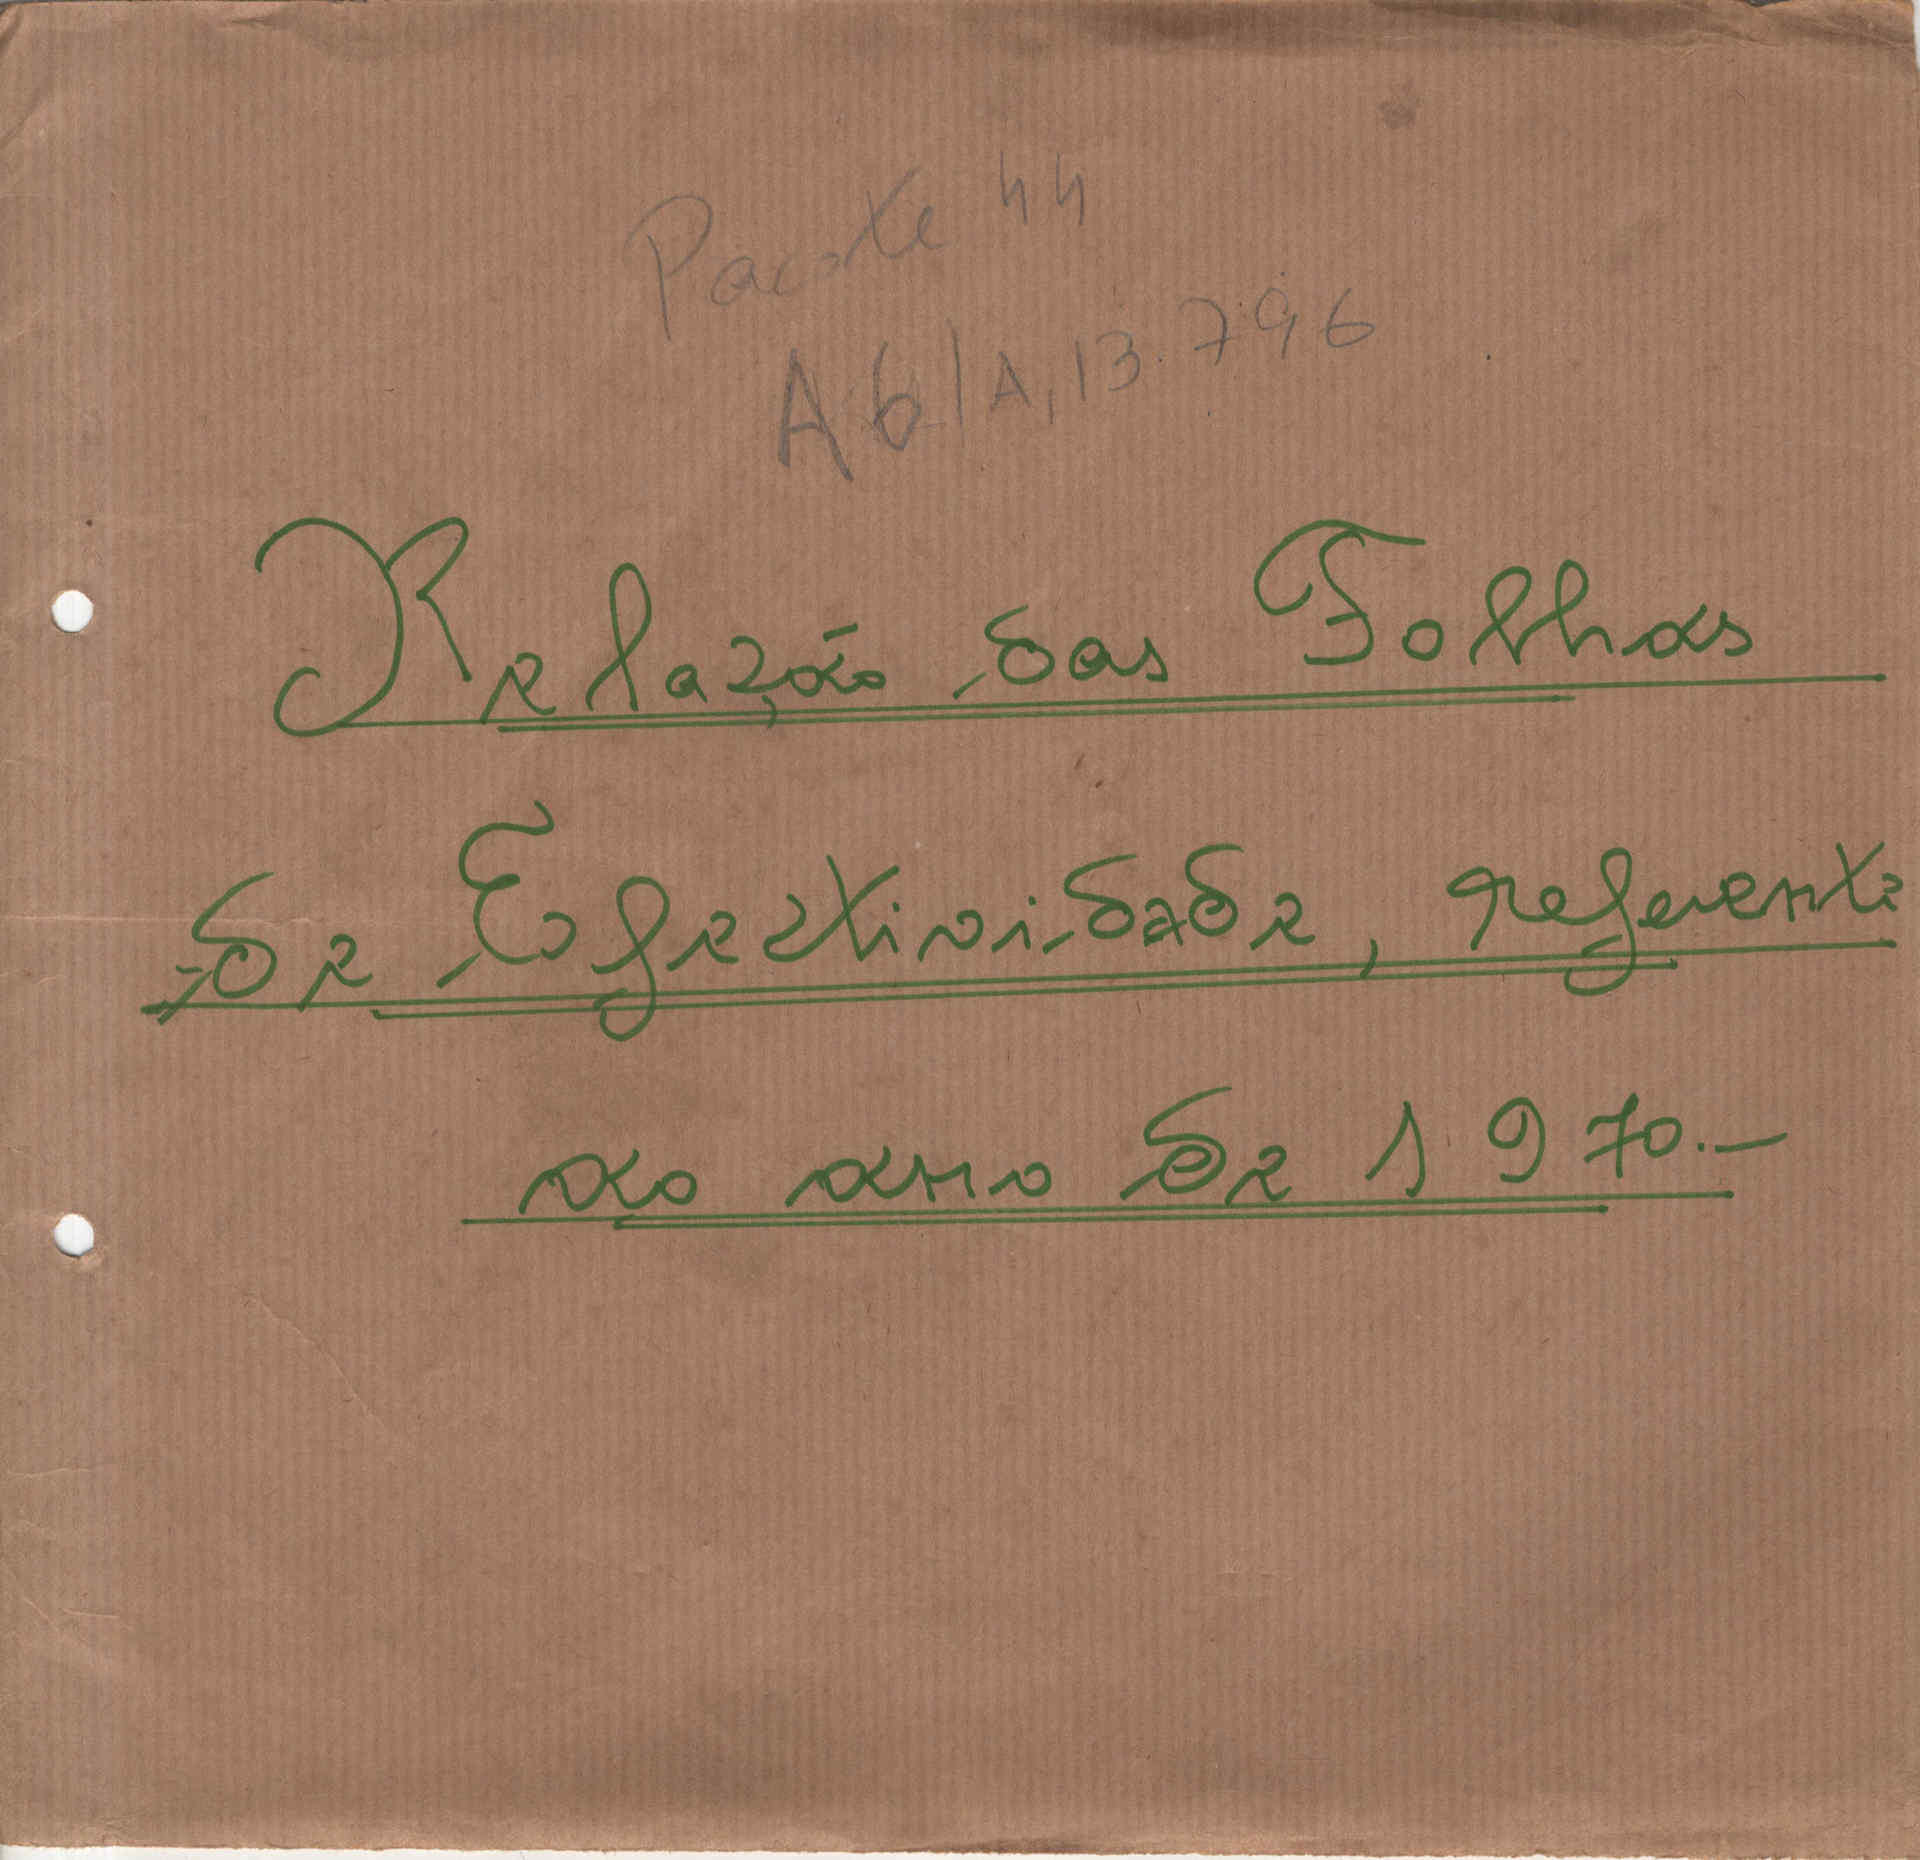 Pacote 44
A6/A,13.796
Relação das Folhas
de Efectividade, referente
ao ano de 1970.-